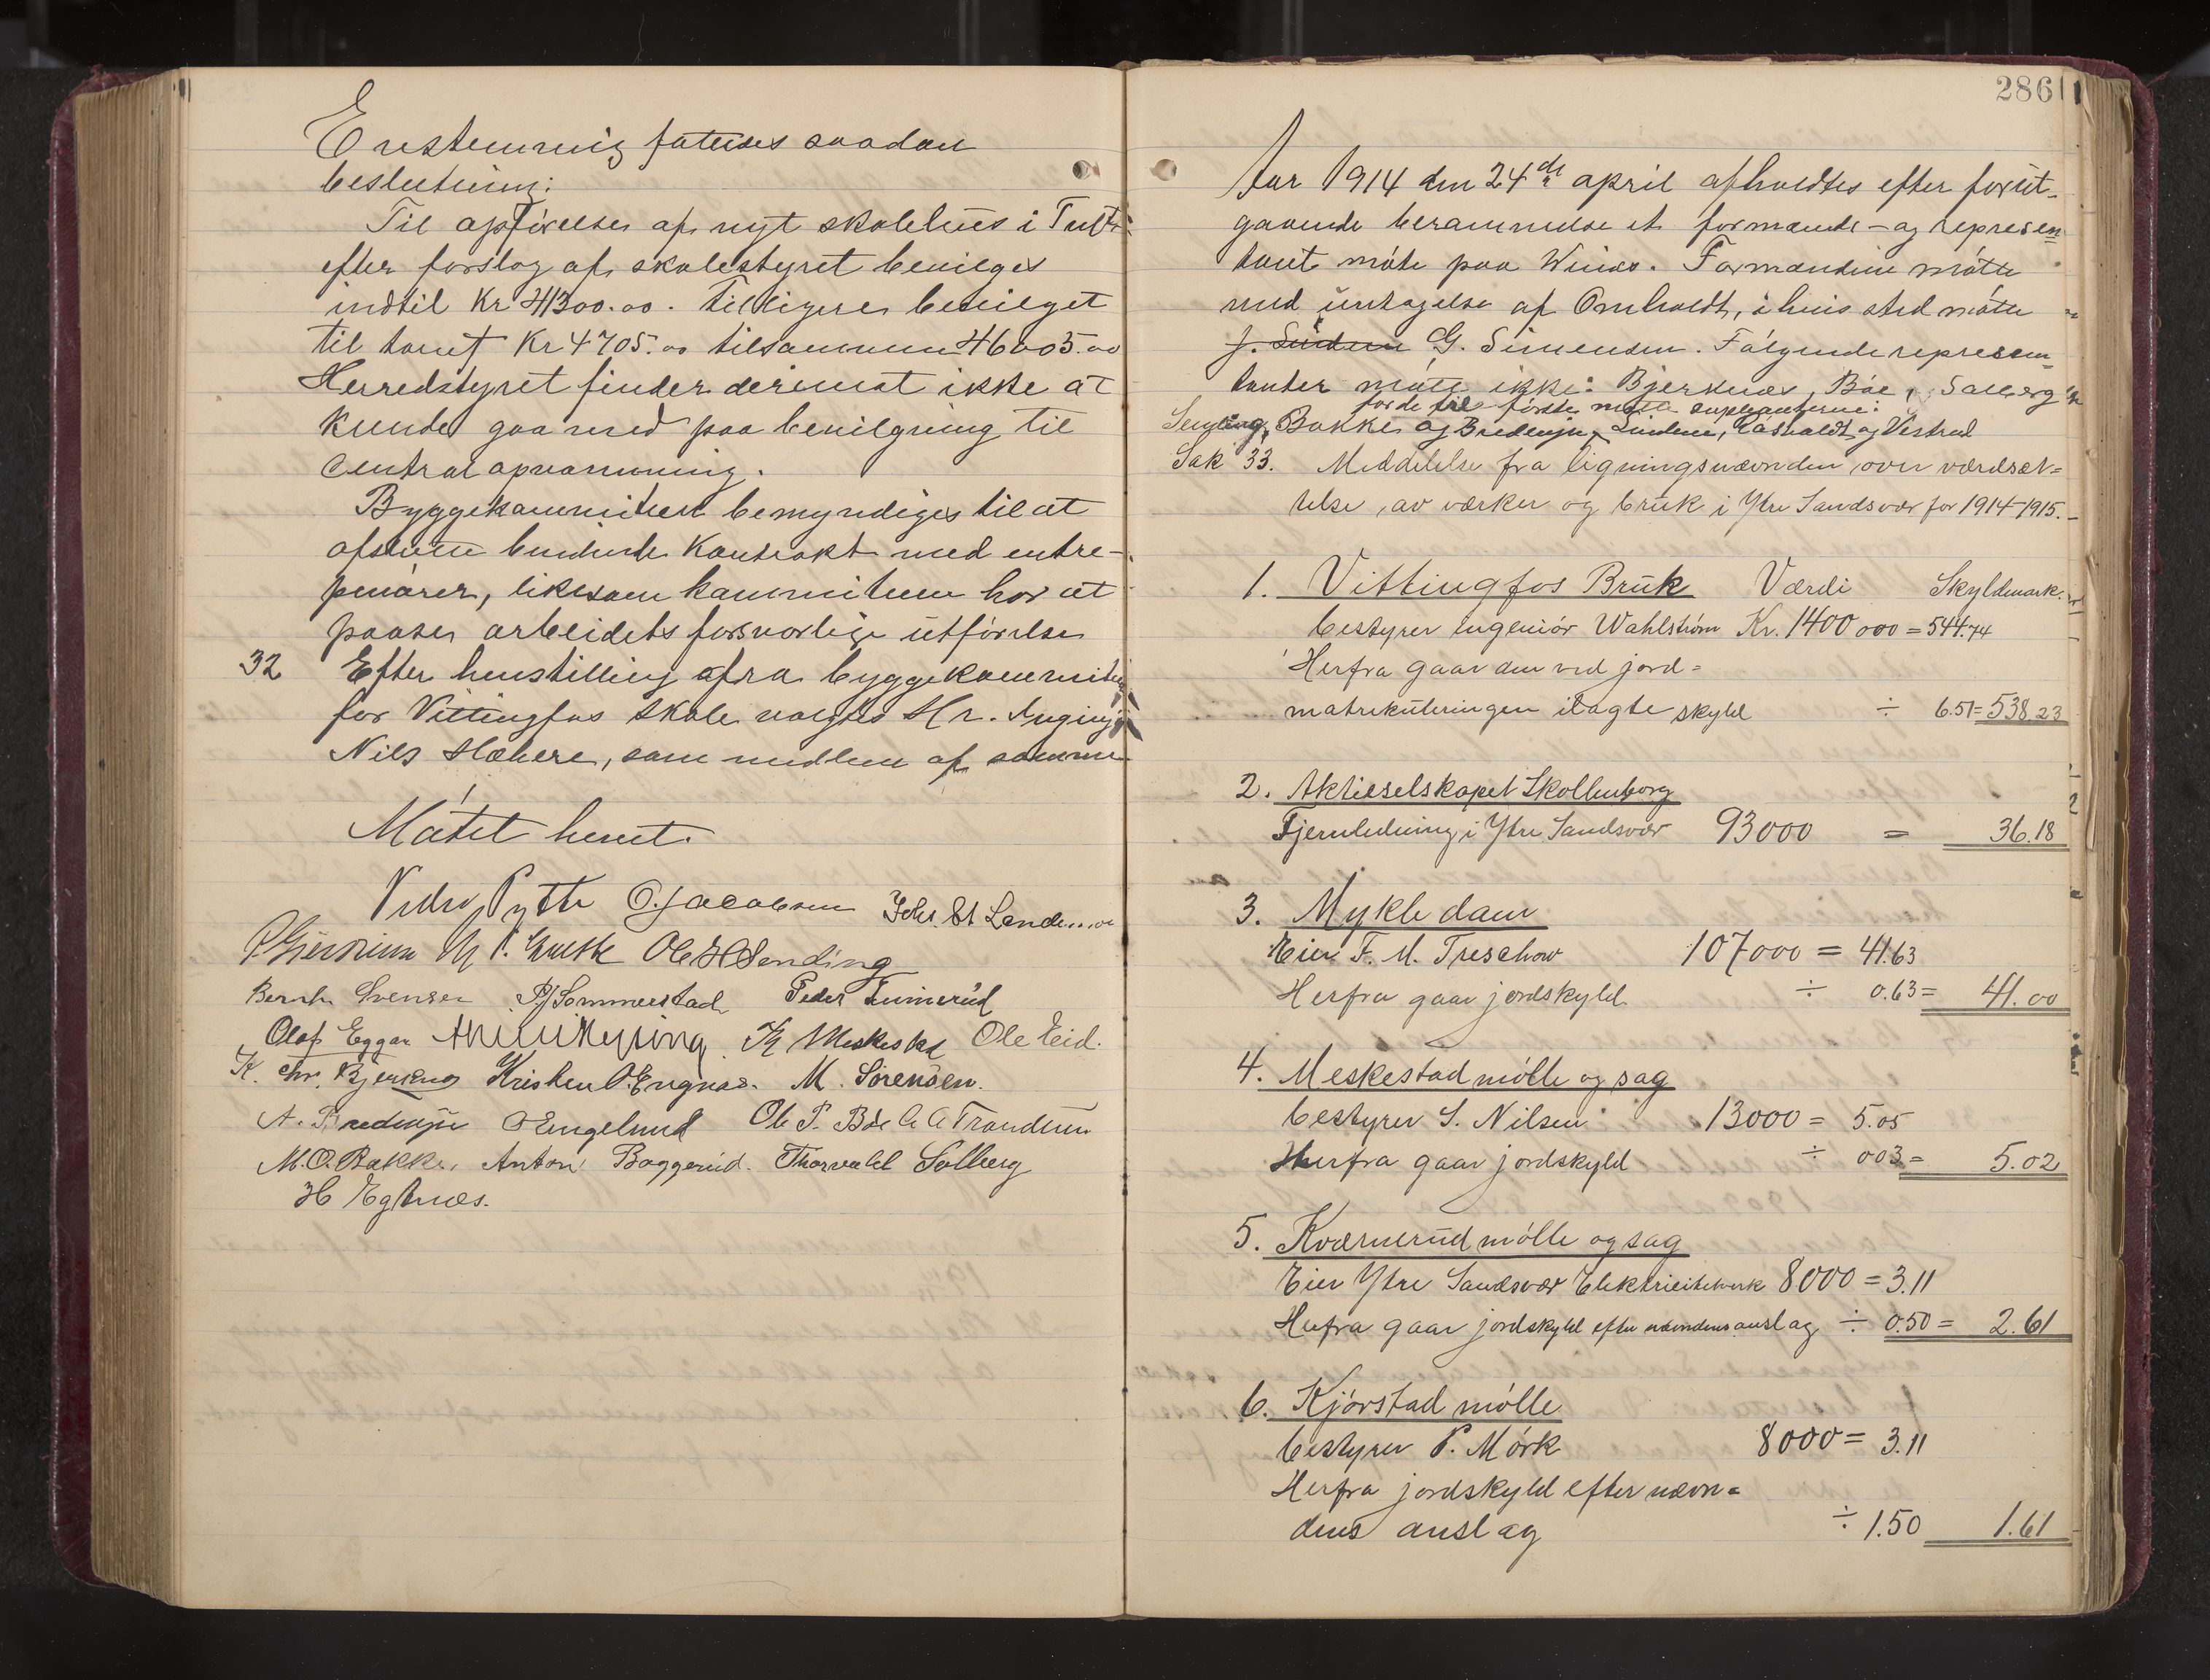 Enstemmig fatedes saadan
beslutning:
Til opførelse af nyt skolehus i Tuft
efter forslag af skolestyret bevilges
indtil Kr 41300.00. Tidligere bevilget
til tomt Kr 4705.00 tilsammen 46005.00
Herredstyret finder derimot ikke at
kunde gaa med paa bevilgning til
Central opvarmning.
Byggekommiteen bemyndiges til at
afslutte bindende Kontrakt med entre-
penører, likesom kommiteen har at
paase arbeidets forsvarlige utførelse
32 Efter henstilling afra byggekommiteen
for Vittingfos skole valgtes Hr.
Nils som medlem af samme
Møtet hevet.
Pytte O. Jacobsen Johs. St. Landemoe
Ole H Sending
Bernh. Svensen P J Sommerstad Peder
Olaf Eggar Meskestad Ole Eid.
K. Chr. Bjerknes Kristen O. Engnæs. M. Sørensen.
A. Bredesen O Engelund Ole P. Bøe A A Trandum
M.O. Bakke, Anton Baggerud. Thorvald Solberg
H Egtnæs.
286
Aar 1914 den 24de april afholdtes efter forut-
gaaende berammelse et formænds- og represen=
tant møte paa Winæs. Formændene møtte
med untagelse af Omholdt, i hvis sted møtte
J. Lindem G. Simensen. Følgende represen=
tanter møtte ikke: Bjerknæs, Bøe, Solberg
for de til første møtte supleanterne:
Sending, Bakke og Bredesen, Lindem, Aasholdt og Vestrud
Sak 33. Meddelelse fra ligningsnævnden over værdsæt=
telse av værker og bruk i Ytre Sandsvær for 1914-1915.
1. Vittingfos Bruk Værdi Skyldmark.
bestyrer ingeniør Wahlstrøm Kr. 1400 000 = 544.74
Herfra gaar den ved jord=
matrikuleringen ilagte skyld ÷ 6.51 = 538 23
2. Aktieselskapet Skollenborg
Fjernledning i Ytre Sandsvær 93000 = 36.18
3. Mykle dam
Eier F. M. Treschow 107000 = 41.63
Herfra gaar jordskyld ÷ 0.63 = 41.00
4. Meskestad mølle og sag
bestyrer S. Nilsen 13000 = 5.05
Herfra gaar jordskyld ÷ 003 = 5.02
5. Kværnerud mølle og sag
Eier Ytre Sandsvær Elektricitetverk 8000 = 3.11
Herfra gaar jordskyld efter nævndens anslag ÷ 0.50 = 2.61
6. Kjørstad mølle
bestyrer P. Mørk 8000 = 3.11
Herfra jordskyld efter nævn=
dens anslag ÷ 1.50 1.61